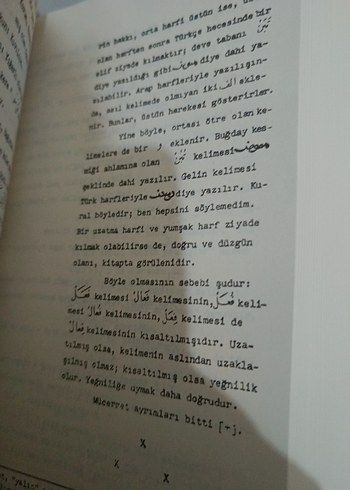 yün hakkı, orta harfi üstün ise, 
olan harften sonra Türkçe hecesinde bir
elif ziyade kılmaktır; deve tabanı
diye yazıldığı gibi diye dahi ya-
zılabilir. Arap harfleriyle yazılışın-
da, asıl kelimede olmıyan iki الف ekle-
nir. Bunlar, üstün harekesi gösterirler.
Yine böyle, ortası ötre olan ke-
limelere de bir و eklenir. Buğday kes-
miği anlamına olan kelimesi
şeklinde dahi yazılır. Gelin kelimesi
Türk harfleriyle diye yazılır. Ku-
ral böyledir; ben hepsini söylemedim.
Bir uzatma harfi ve yumşak harf ziyade
kılmak olabilirse de, doğru ve düzgün
olanı, kitapta görülenidir.
Böyle olmasının sebebi şudur:
فَعَلْ kelimesi فَعَالْ kelimesinin, فُعَلْ keli-
mesi فُعَالْ kelimesinin, فِعَلْ kelimesi de
فِعَالْ kelimesinin kısaltılmışıdır. Uza-
tılmış olsa, kelimenin aslından uzakla-
şılmış olmaz; kısaltılmış olsa yeğnilik
olur. Yeğniliğe uymak daha doğrudur.
Mücerret ayrımları bitti [-].
x
x x